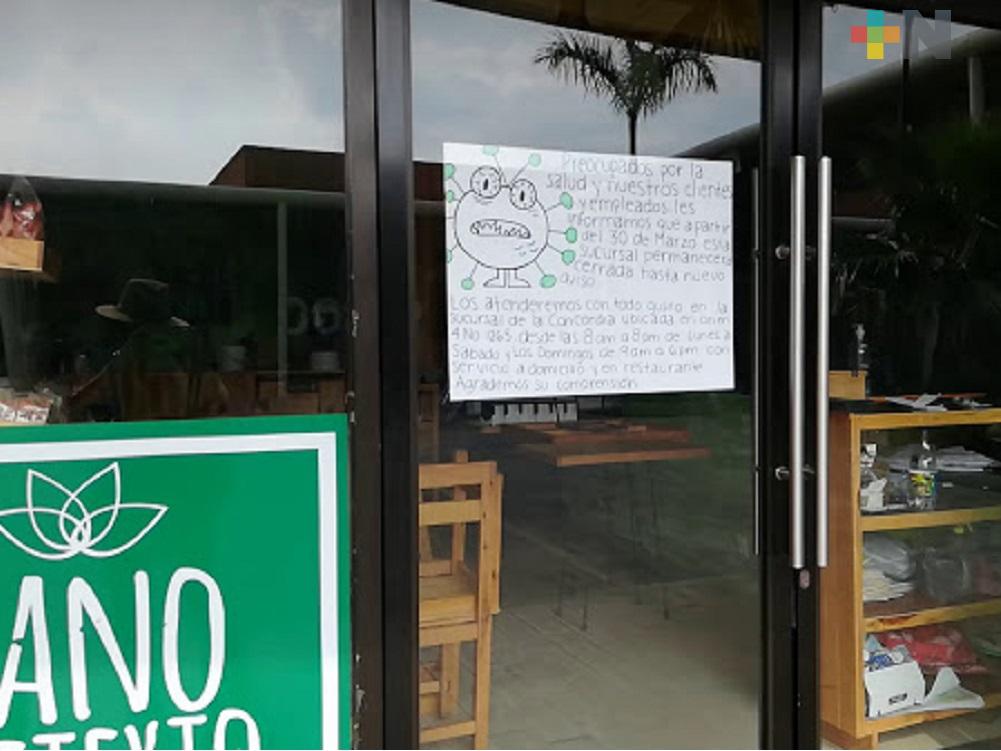 N
Preocupados por la
salud y nuestros clientes
y empleados les
informamos que a partir
del 30 de Marzo esta
sucursal permanecera
cerrada hasta nuevo
aviso.
Los atenderemos con todo gusto en la
sucursal de la Concordia ubicada en
4 No 1265 desde las 8am a 8pm de Lunes a
Sabado y Los Domingos de 9am a 6pm con
servicio a domicilio y en restaurante
Agrademos su comprensión
ANO
TEXTO